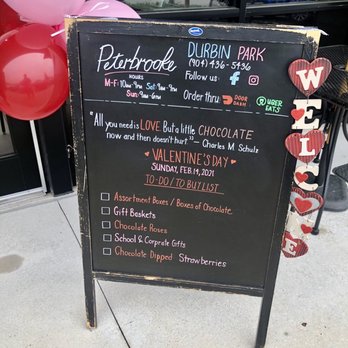 Peterbrooke
DURBIN PARK
(904) 436-5436
HOURS
M-F: 10am-9pm Sat: 9am-9pm
Sun: 9am-6pm
Follow us:
Order thru: DOOR DASH UBER EATS
"All you need is LOVE. But a little CHOCOLATE
now and then doesn't hurt." - Charles M. Schulz
VALENTINE'S DAY
SUNDAY, FEB. 14, 2021
TO-DO / TO BUY LIST
Assortment Boxes / Boxes of Chocolate
Gift Baskets
Chocolate Roses
School & Corporate Gifts
Chocolate Dipped Strawberries
WELCOME